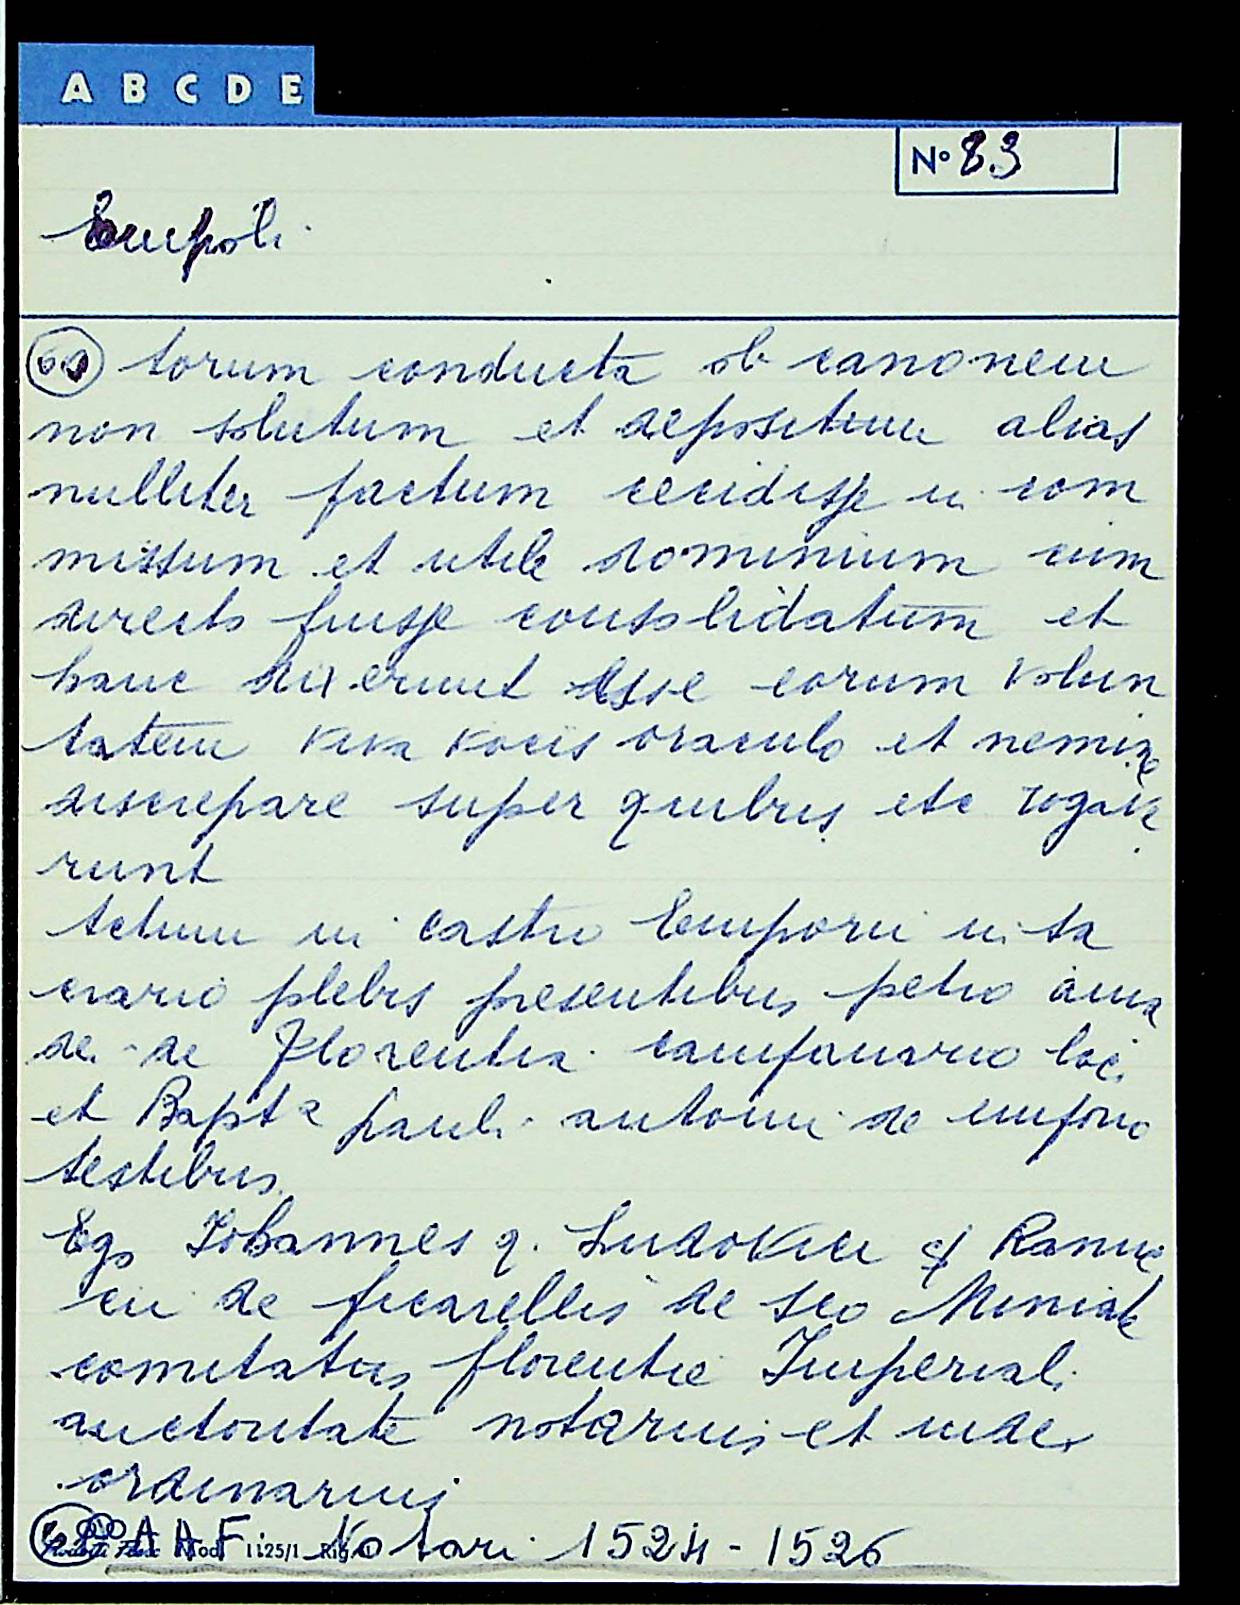 A B C D E
Nº 83
Empoli
torum conducta ob canonem
non solutum et depositum alias
nulliter factum cecidisse in com
missum et utile dominium cum
directo fuisse consolidatum et
hanc dixerunt esse eorum volun
tatem viva vocis oraculo et nemine
discrepare super quibus etc rogave
runt
Actum in castro Emporii in sa
crario plebis presentibus petro ama
dei de Florentia campanario loci
et Bapta pauli antonii de emporio
testibus
Ego Johannes q. Ludovici q Ranuc
cii de ficarellis de sco Miniate
comitatus florentie Imperiali
auctoritate notarius et iudex
ordinarius
A A F Notari 1524 - 1526
Mod 1125/1 Rig